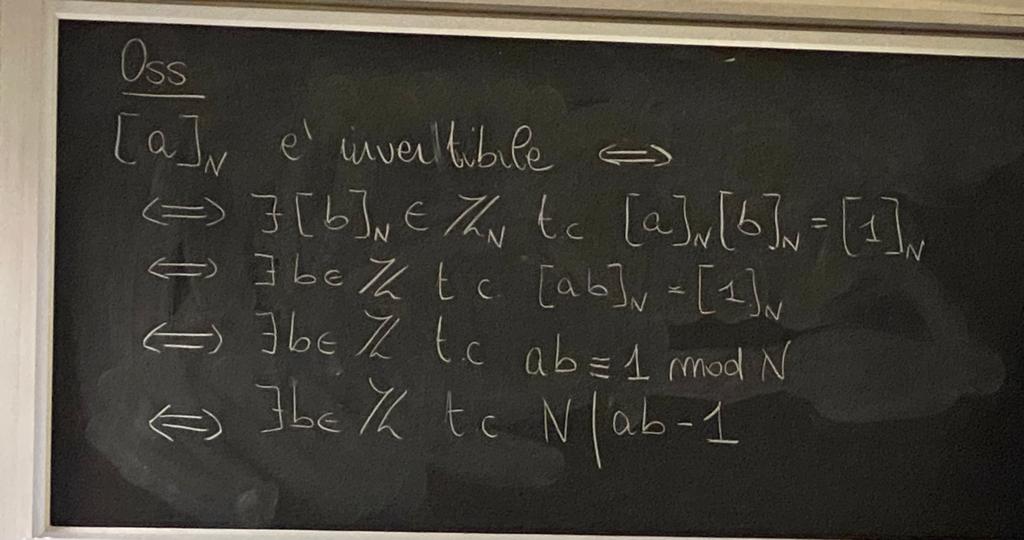 Oss
[a]_N e' invertibile ⟺
⟺ ∃[b]_N ∈ ℤ_N t c [a]_N[b]_N = [1]_N
⟺ ∃b∈ ℤ t c [ab]_N = [1]_N
⟺ ∃b∈ ℤ t.c ab ≡ 1 mod N
⟺ ∃b∈ ℤ t c N | ab - 1